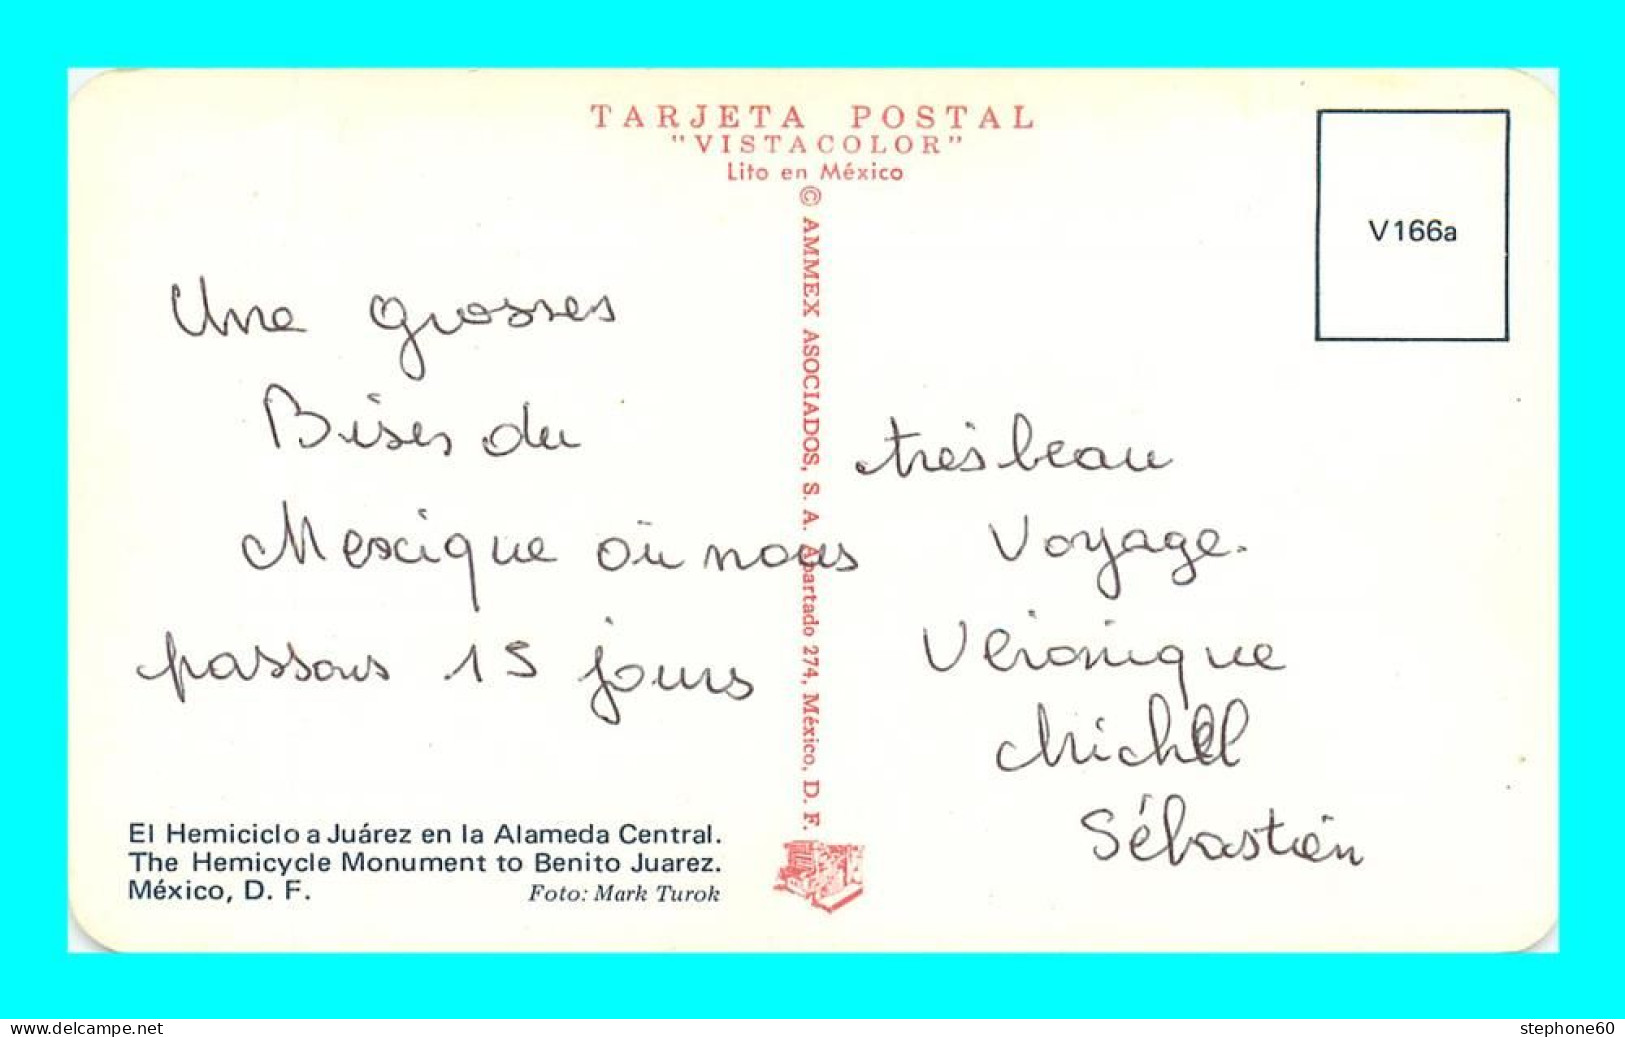 TARJETA POSTAL
"VISTACOLOR"
Lito en México
© AMMEX ASOCIADOS, S. A. Apartado 274, México, D. F.
V166a
Une grosses
Bises du
Mexique où nous
passons 15 jours
très beau
Voyage.
Véronique
Michel
Sébastien
El Hemiciclo a Juárez en la Alameda Central.
The Hemicycle Monument to Benito Juarez.
México, D. F. Foto: Mark Turok
www.delcampe.net
stephone60